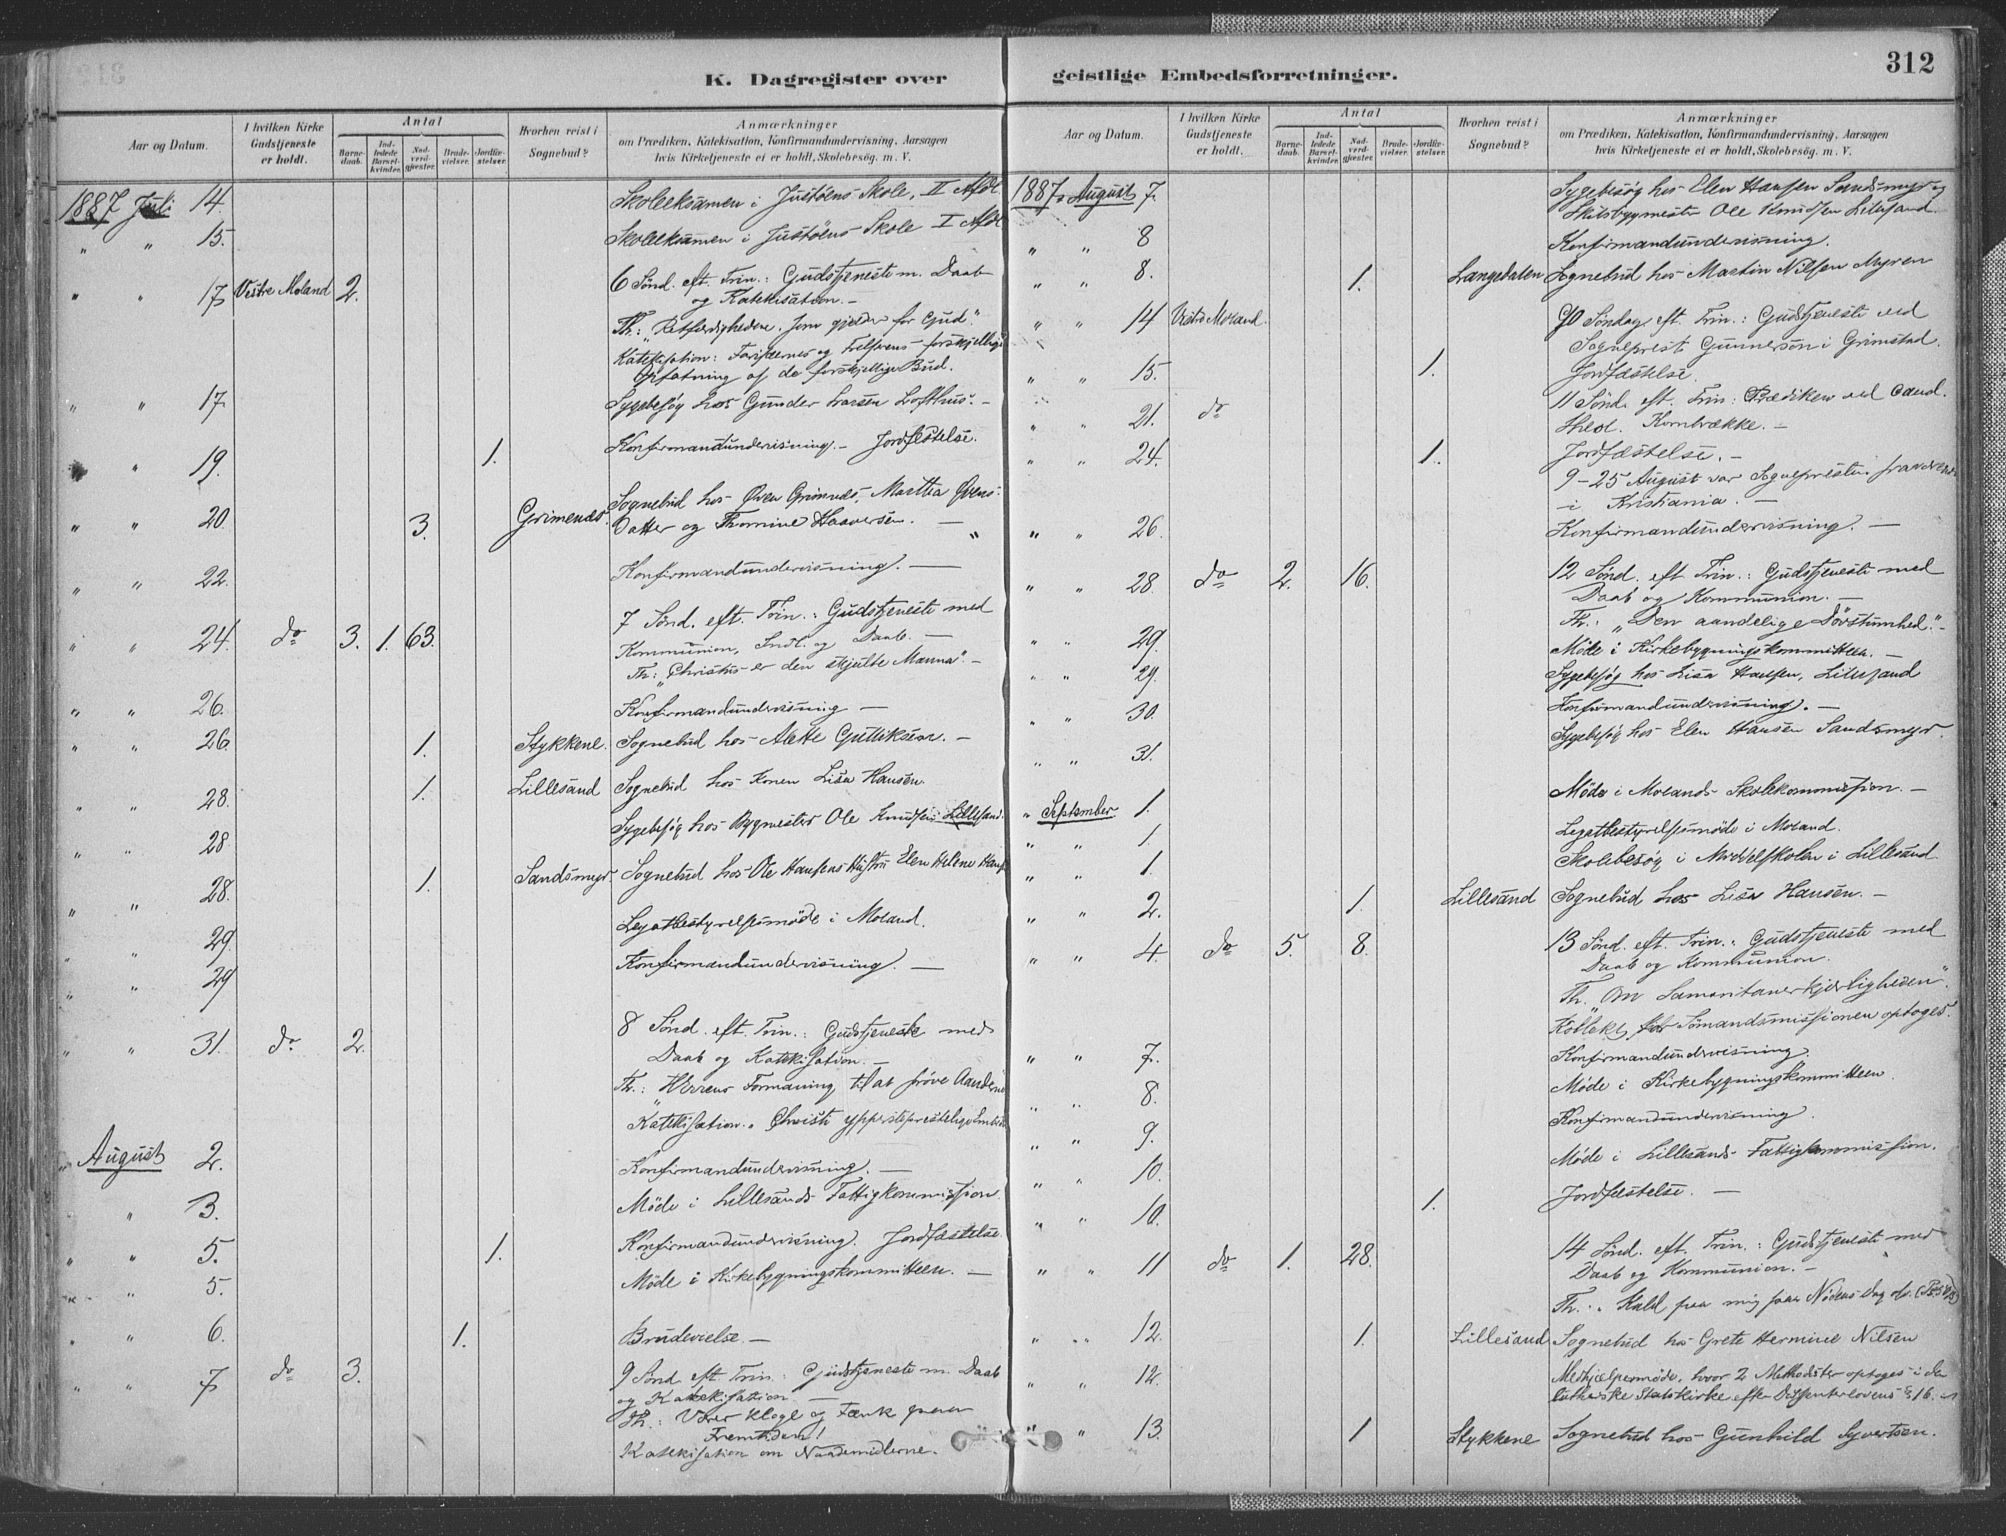 312
K. Dagregister over geistlige Embedsforretninger.
Aar og Datum. I hvilken Kirke Gudstjeneste er holdt. Antal Barne-daab. Ind-ledede Barsel-kvinder. Nad-verd-gjæster. Brude-vielser. Jordfæ-stelser. Hvorhen reist i Sognebud? Anmærkninger
om Prædiken, Katekisation, Konfirmandundervisning, Aarsagen
hvis Kirketjeneste ei er holdt, Skolebesøg. m. V.
1887 Juli 14. Skoleeksamen i Justøens Skole, II Afdl.
" " 15. Skoleeksamen i Justøens Skole I Afdl
" " 17 Vestre Moland 2. 6 Sønd. eft. Trin.: Gudstjeneste m. Daab
og Katekisation. –
Th: "Retfærdigheden, som gjelder for Gud".
Katekisation: Farisæernes og Frelserens forskjellige
Opfatning af de forskjellige Bud.
" " 17. Sygebesøg hos Gunder Larsen Lofthus. –
" " 19. 1. Konfirmandundervisning. – Jordfestelse.
" " 20 3. Grimenæs. Sognebud hos Øven Grimenæs, Martha Øvens-
datter og Thomine Haaversen. –
" " 22. Konfirmandundervisning. –
" " 24. do 3. 1. 63. 7 Sønd. eft. Trin.: Gudstjeneste med
Kommunion, Indl. og Daab. –
Th: "Christus er den skjulte Manna". –
" " 26. Konfirmandundervisning –
" " 26. 1. Stykkene. Sognebud hos Alette Gulliksen. –
" " 28. 1. Lillesand Sognebud hos Konen Lisa Hansen.
" " 28. Sygebesøg hos Bygmester Ole Knudsen Lillesand.
" " 28. 1. Sandsmyr. Sognebud hos Ole Hansens Hustru Elen Helene Hans
" " 29. Legatbestyrelsesmøde i Moland.
" " 29 Konfirmandundervisning. –
" " 31. do 2. 8 Sønd. eft. Trin.: Gudstjeneste med
Daab og Katekisation. –
Th.: Herrens Formaning til at prøve Aanderne
Katekisation: Christi ypperstepræstelige Embede
" August 2. Konfirmandundervisning. –
" 3. Møde i Lillesands Fattigkommission.
" " 5. 1. Konfirmandundervisning. Jordfæstelse.
" " 5. Møde i Kirkebygningskommitteen. –
" " 6. 1. Brudevielse –
" " 7 do 3. 9 Sønd eft. Trin: Gudstjeneste m. Daab
og Katekisation –
Th.: Vær klog og tænk paa
Fremtiden!
Katekisation om Naademidlerne.
Aar og Datum. I hvilken Kirke Gudstjeneste er holdt. Antal Barne-daab. Ind-ledede Barsel-kvinder. Nad-verd-gjæster. Brude-vielser. Jordfæ-stelser. Hvorhen reist i Sognebud? Anmærkninger
om Prædiken, Katekisation, Konfirmandundervisning, Aarsagen
hvis Kirketjeneste ei er holdt, Skolebesøg. m. V.
1887. August 7. Sygebesøg hos Elen Hansen Sandsmyr og
Skibsbygmester Ole Knudsen Lillesand.
" " 8 Konfirmandundervisning.
" " 8. 1. Langedalen Sognebud hos Martin Nilsen Myren
" " 14 Vestre Moland. 10 Søndag eft. Trin.: Gudstjeneste ved
Sogneprest Gunnersen i Grimstad.
" " 15. 1. Jordfæstelse.
" " 21. do 11 Sønd. eft. Trin: Prædiken ved Cand.
theol. Kornbrække. –
" " 24. 1. Jordfæstelse. –
9–25 August var Sognepresten fraværende
i Kristiania. –
" " 26. Konfirmandundervisning. –
" " 28. do 2. 16. 12 Sønd. eft. Trin.: Gudstjeneste med
Daab og Kommunion. –
Th.: "Den aandelige Døvstumhed." –
" " 29. Møde i Kirkebygningskommitteen. –
" " 29. Sygebesøg hos Lisa Hansen, Lillesand
" " 30. Konfirmandundervisning. –
" " 31. Sygebesøg hos Elen Hansen Sandsmyr.
" September 1. Møde i Molands Skolekommission. –
" " 1. Legatbestyrelsesmøde i Moland.
" " 1. Skolebesøg i Middelskolen i Lillesand
" " 2. 1. Lillesand Sognebud hos Lisa Hansen. –
" " 4. do 5. 8. 13 Sønd. eft. Trin.: Gudstjeneste med
Daab og Kommunion.
Th. "Om Samaritanerkjerligheden".
Kollekt for Sømandsmissionen optoges.
" " 7. Konfirmandundervisning.
" " 8. Møde i Kirkebygningskommitteen.
" " 9. Konfirmandundervisning.
" " 10. Møde i Lillesands Fattigkommission.
" " 10. 1. Jordfæstelse. –
" " 11 do 1. 28. 14 Sønd. eft. Trin.: Gudstjeneste med
Daab og Kommunion. –
Th.: Kald paa mig paa Nødens Dag
" " 12. 1. Lillesand Sognebud hos Grete Hermine Nilsen
" " 12. Medhjælpermøde, hvor 2 Methodister optoges i den
lutherske Statskirke efter Dissenterlovens § 16.
" " 13. 1 Stykkene Sognebud hos Gunhild Syvertsen.